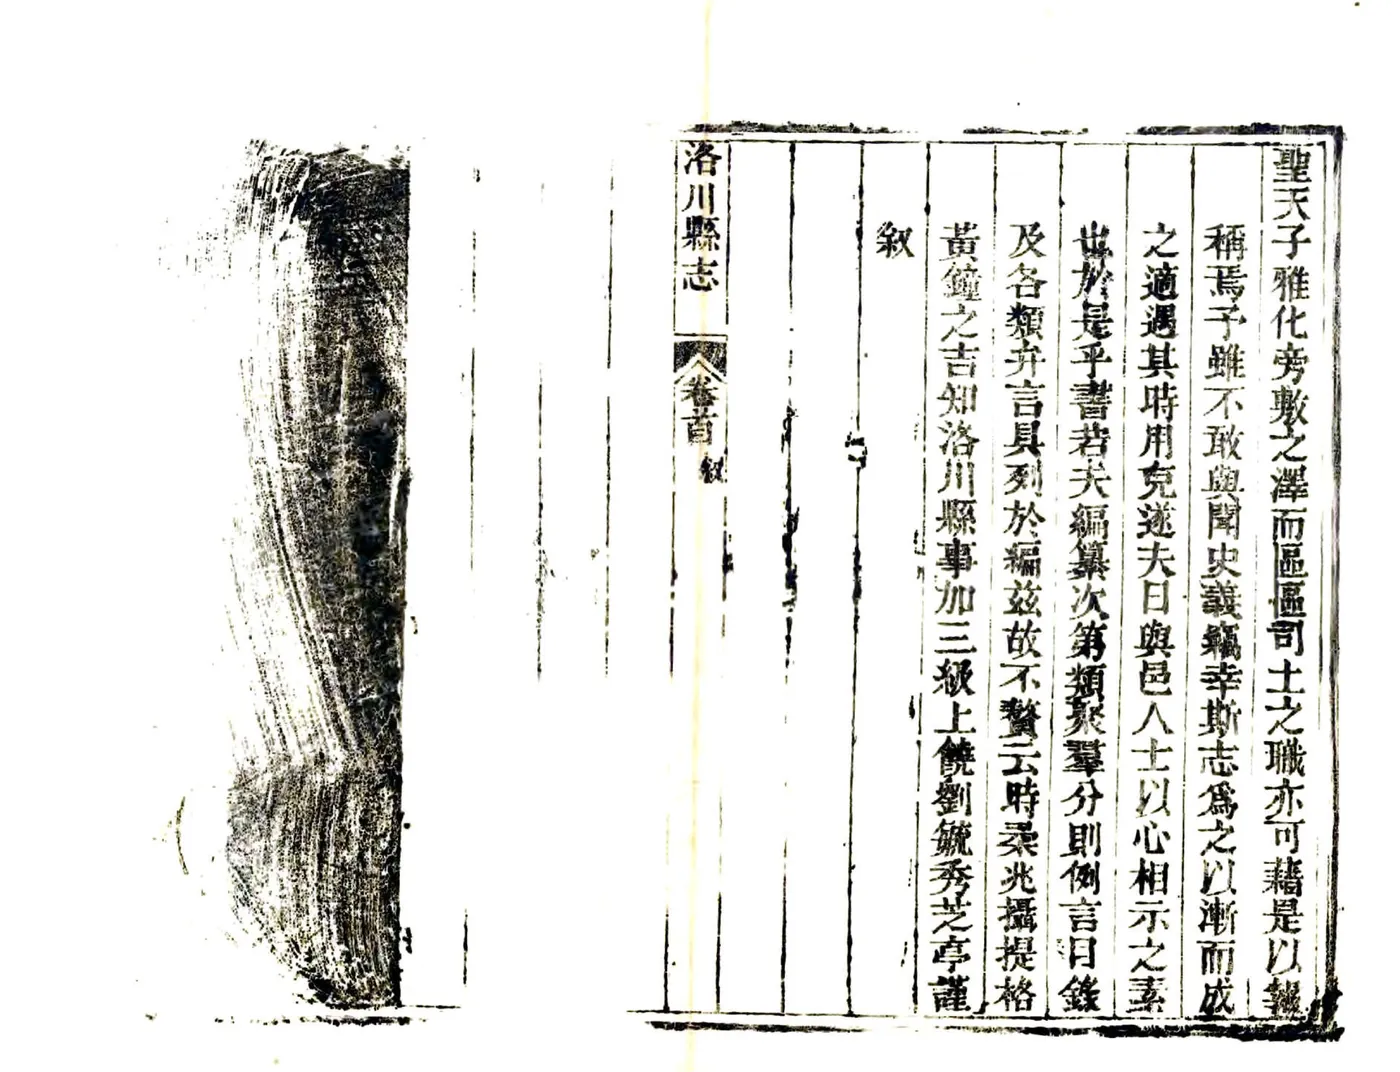 聖天子雅化旁敷之澤而區區司土之職亦可藉是以報
稱焉予雖不敢與聞史義竊幸斯志爲之以漸而成
之適遇其時用克遂夫日與邑人士以心相示之素
也於是乎書若夫編纂次第類聚羣分則例言目錄
及各類弁言具列於編茲故不贅云時柔兆攝提格
黃鐘之吉知洛川縣事加三級上饒劉毓秀芝亭謹
叙
洛川縣志
卷首
叙